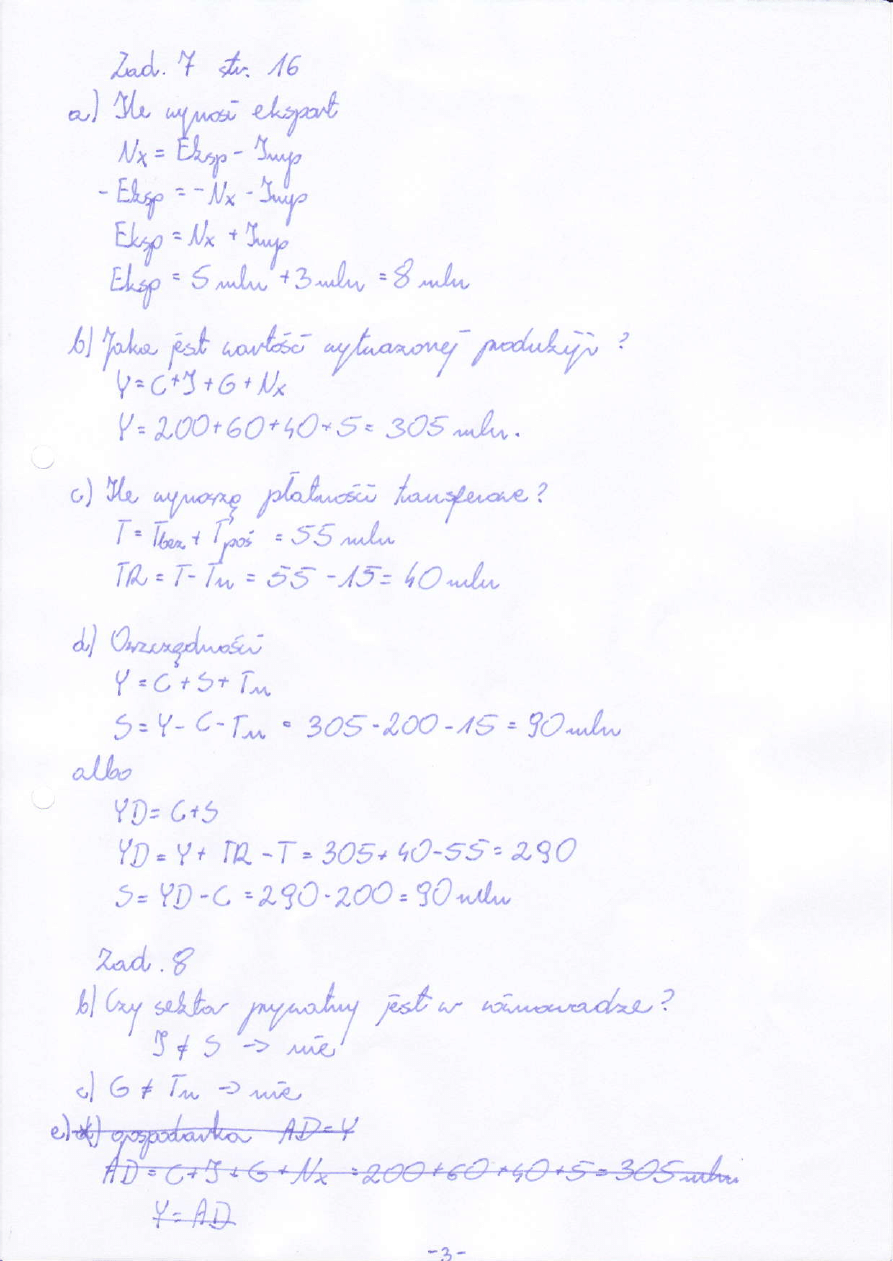 Zad. 7 str. 16
a) Ile wynosi eksport
Nx = Eksp - Imp
- Eksp = - Nx - Imp
Eksp = Nx + Imp
Eksp = 5 mln + 3 mln = 8 mln
b) Jaka jest wartość wytwarzonej produkcji ?
Y = C + I + G + Nx
Y = 200 + 60 + 40 + 5 = 305 mln.
c) Ile wynoszą płatności transferowe ?
T = Tbez + Tpoś = 55 mln
TR = T - Tn = 55 - 15 = 40 mln
d) Oszczędności
Y = C + S + Tn
S = Y - C - Tn = 305 - 200 - 15 = 90 mln
albo
YD = C + S
YD = Y + TR - T = 305 + 40 - 55 = 290
S = YD - C = 290 - 200 = 90 mln
Zad. 8
b) Czy sektor prywatny jest w równowadze ?
I ≠ S -> nie
c) G ≠ Tn -> nie
e) d) gospodarka AD = Y
AD = C + I + G + Nx = 200 + 60 + 40 + 5 = 305 mln.
Y = AD
- 3 -